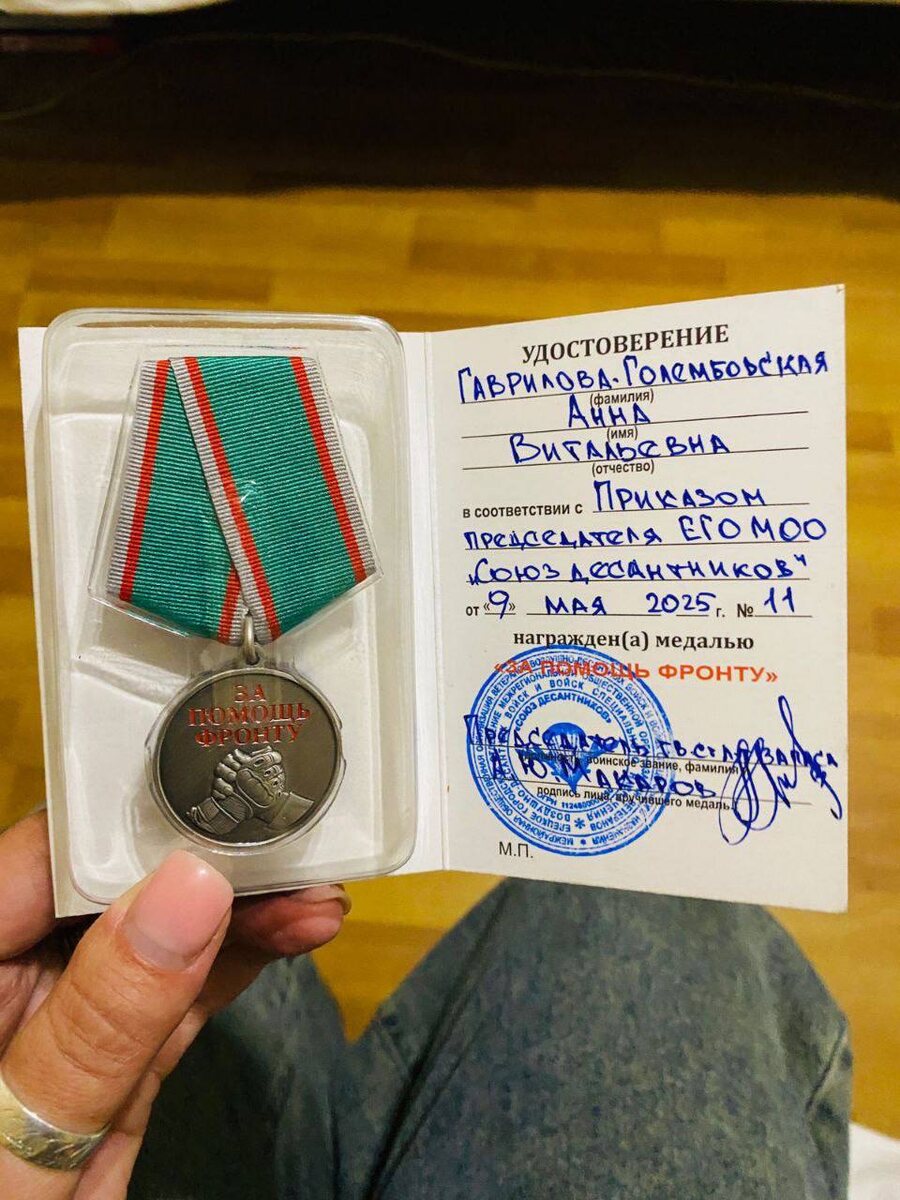 ЗА
ПОМОЩЬ
ФРОНТУ
УДОСТОВЕРЕНИЕ
Гаврилова-Голембовская
(фамилия)
Анна
(имя)
Витальевна
(отчество)
в соответствии с Приказом
председателя ЕГО МОО
„Союз десантников"
от «9» мая 2025 г. № 11
награжден(а) медалью
«ЗА ПОМОЩЬ ФРОНТУ»
Председатель
воинское звание, фамилия
А.Ю. Макаров
подпись лица, вручившего медаль
М.П.
«СОЮЗ ДЕСАНТНИКОВ»